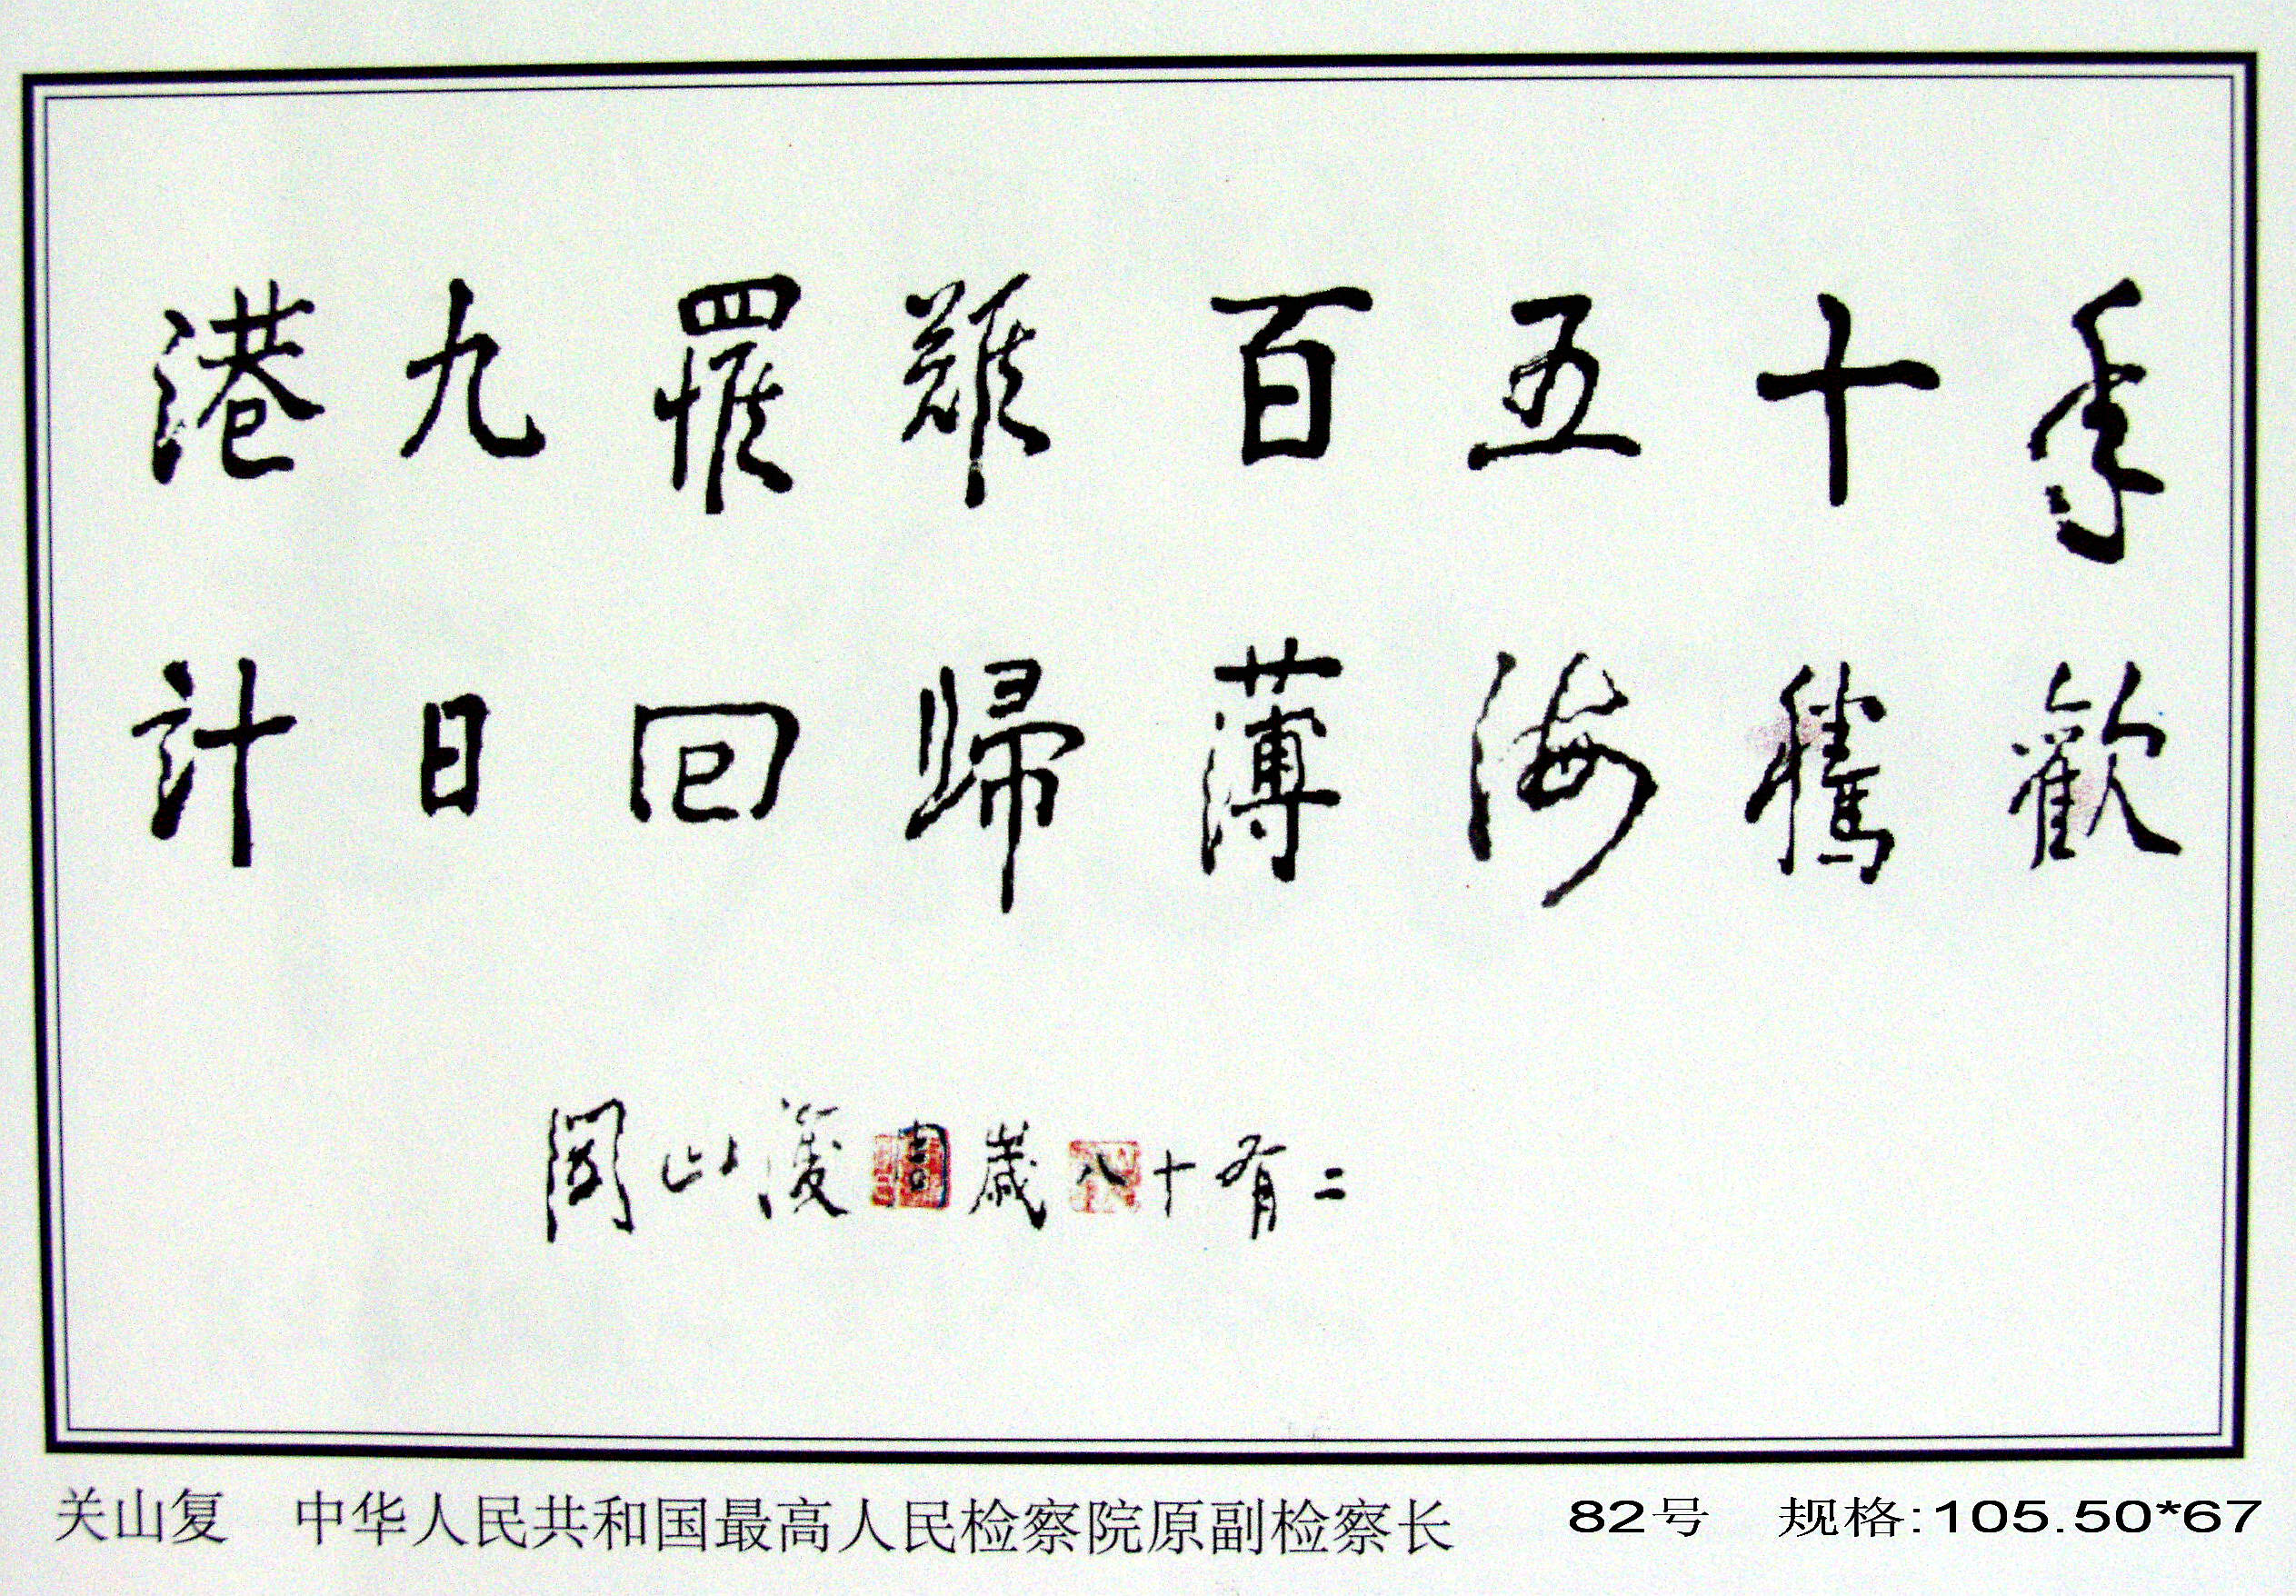 港九罹難百五十季
計日回歸薄海騰歡
關山復周歲八十有二
关山复 中华人民共和国最高人民检察院原副检察长 82号 规格:105.50*67